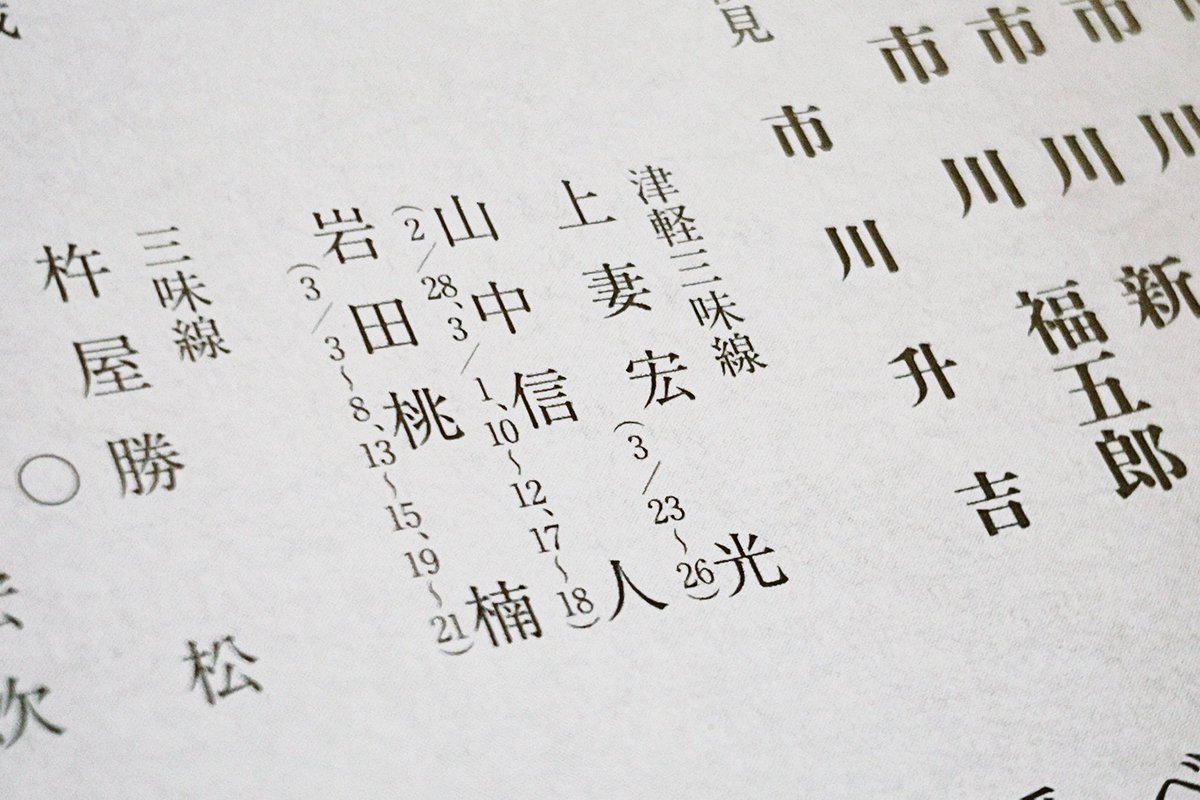 市川新
市川福五郎
市川升吉
見
津軽三味線
上妻宏光
(3/23〜26)
山中信人
(2/28、3/1、10〜12、17〜18)
岩田桃楠
(3/3〜8、13〜15、19〜21)
三味線
杵屋勝松
○
次